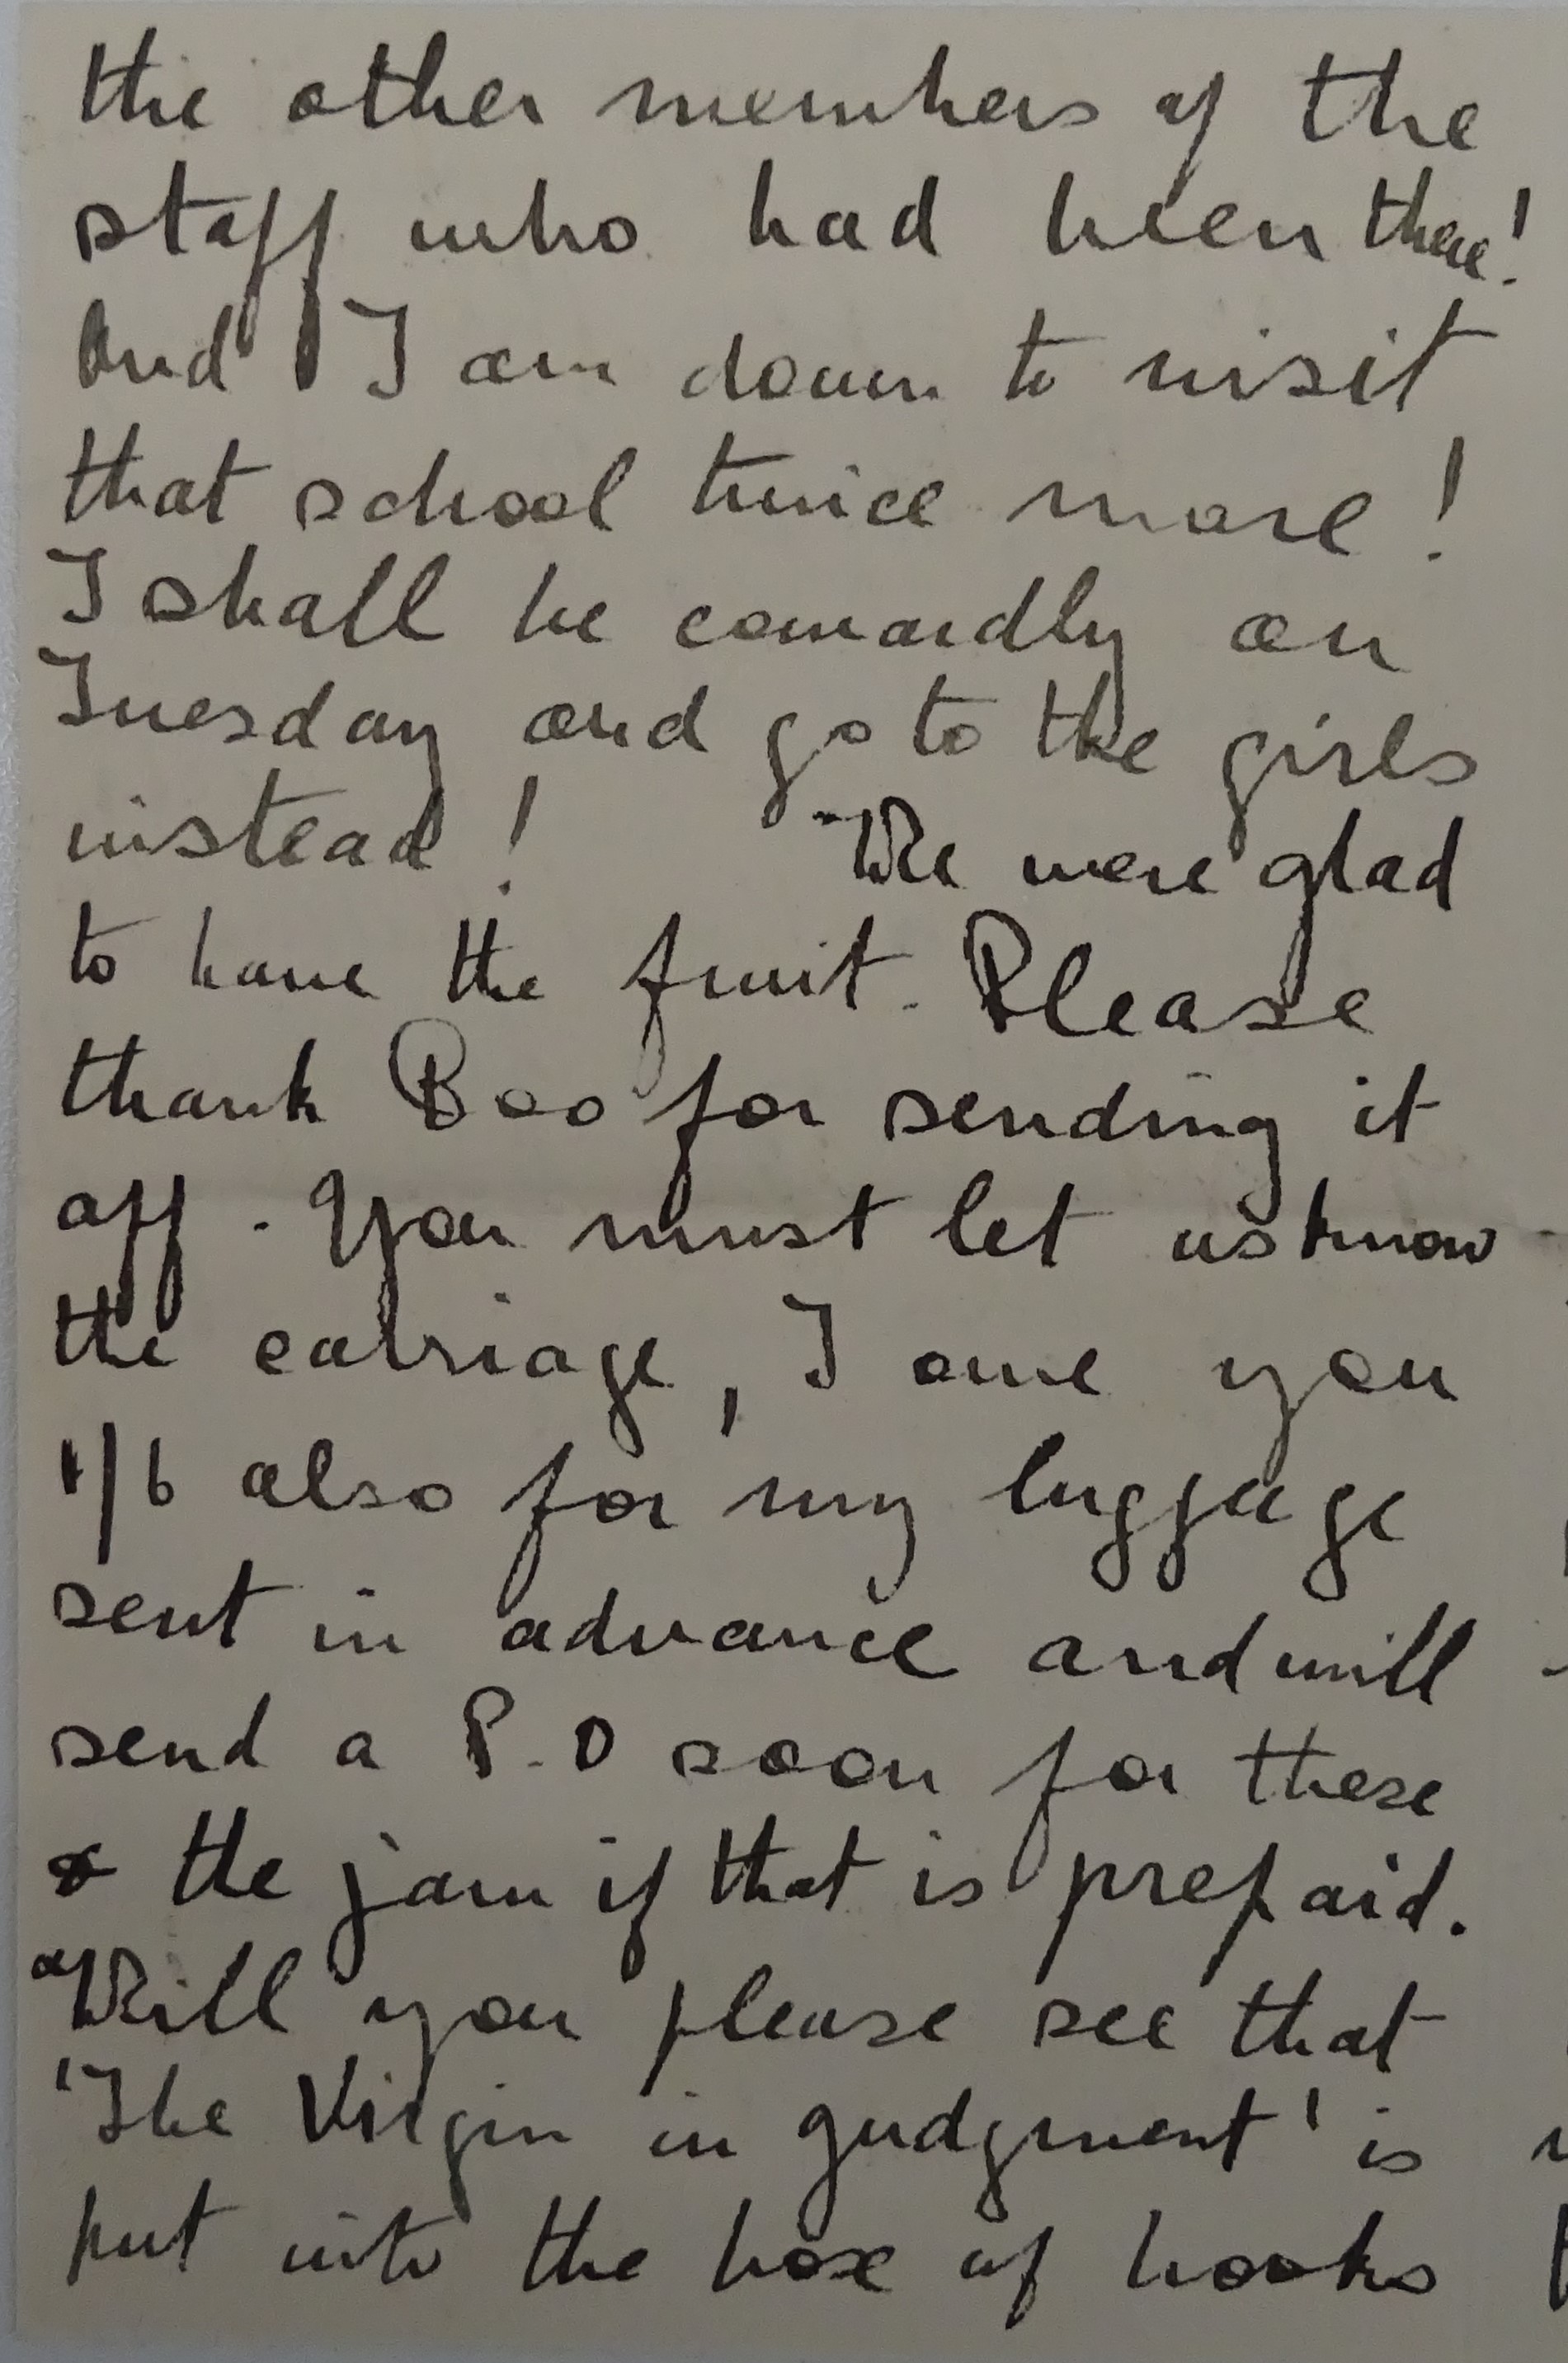 the other members of the
staff who had been there!
And I am down to visit
that school twice more!
I shall be cowardly on
Tuesday and go to the girls
instead! We were glad
to have the fruit. Please
thank Boo for sending it
off. You must let us know
the carriage, I owe you
1/6 also for my luggage
sent in advance and will
send a P.O soon for these
& the jam if that is prepaid.
Will you please see that
'The Virgin in Judgment' is
put into the box of books